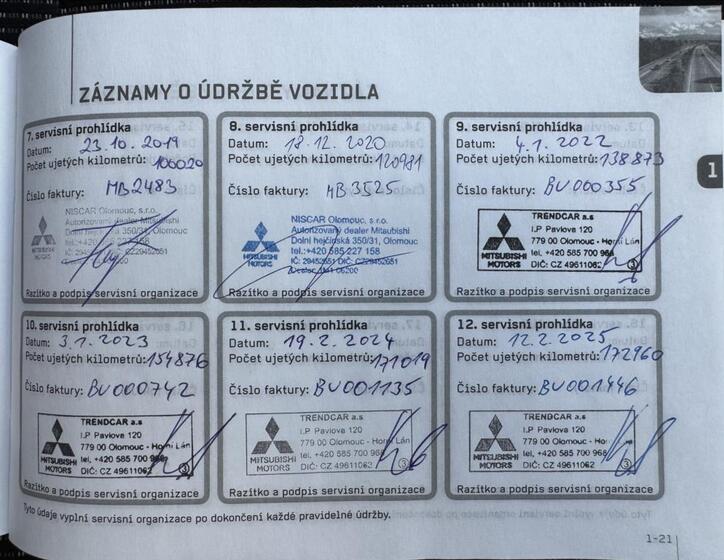 ZÁZNAMY O ÚDRŽBĚ VOZIDLA
7. servisní prohlídka
Datum: 23.10.2019
Počet ujetých kilometrů: 106020
Číslo faktury: MB2483
NISCAR Olomouc, s.r.o.
Autorizovaný dealer Mitsubishi
Dolní hejčínská 350/31, Olomouc
Razítko a podpis servisní organizace
8. servisní prohlídka
Datum: 18.12.2020
Počet ujetých kilometrů: 120981
Číslo faktury: MB3525
MITSUBISHI
MOTORS
NISCAR Olomouc, s.r.o.
Autorizovaný dealer Mitsubishi
Dolní hejčínská 350/31, Olomouc
tel.:+420 585 227 158
Razítko a podpis servisní organizace
9. servisní prohlídka
Datum: 4.1.2022
Počet ujetých kilometrů: 138873
Číslo faktury: BU000355
MITSUBISHI
MOTORS
TRENDCAR a.s
I.P Pavlova 120
779 00 Olomouc - Horní Lán
tel. +420 585 700 968
DIČ: CZ 49611062
3
Razítko a podpis servisní organizace
1
10. servisní prohlídka
Datum: 3.1.2023
Počet ujetých kilometrů: 154876
Číslo faktury: BU000742
MITSUBISHI
MOTORS
TRENDCAR a.s
I.P Pavlova 120
779 00 Olomouc - Horní Lán
tel. +420 585 700 968
DIČ: CZ 49611062
Razítko a podpis servisní organizace
11. servisní prohlídka
Datum: 19.2.2024
Počet ujetých kilometrů: 171019
Číslo faktury: BU001135
MITSUBISHI
MOTORS
TRENDCAR a.s
I.P Pavlova 120
779 00 Olomouc - Horní Lán
tel. +420 585 700 968
DIČ: CZ 49611062
3
Razítko a podpis servisní organizace
12. servisní prohlídka
Datum: 12.2.2025
Počet ujetých kilometrů: 172960
Číslo faktury: BU001446
MITSUBISHI
MOTORS
TRENDCAR a.s
I.P Pavlova 120
779 00 Olomouc - Horní Lán
tel. +420 585 700 968
DIČ: CZ 49611062
3
Razítko a podpis servisní organizace
Tyto údaje vyplní servisní organizace po dokončení každé pravidelné údržby.
1-21